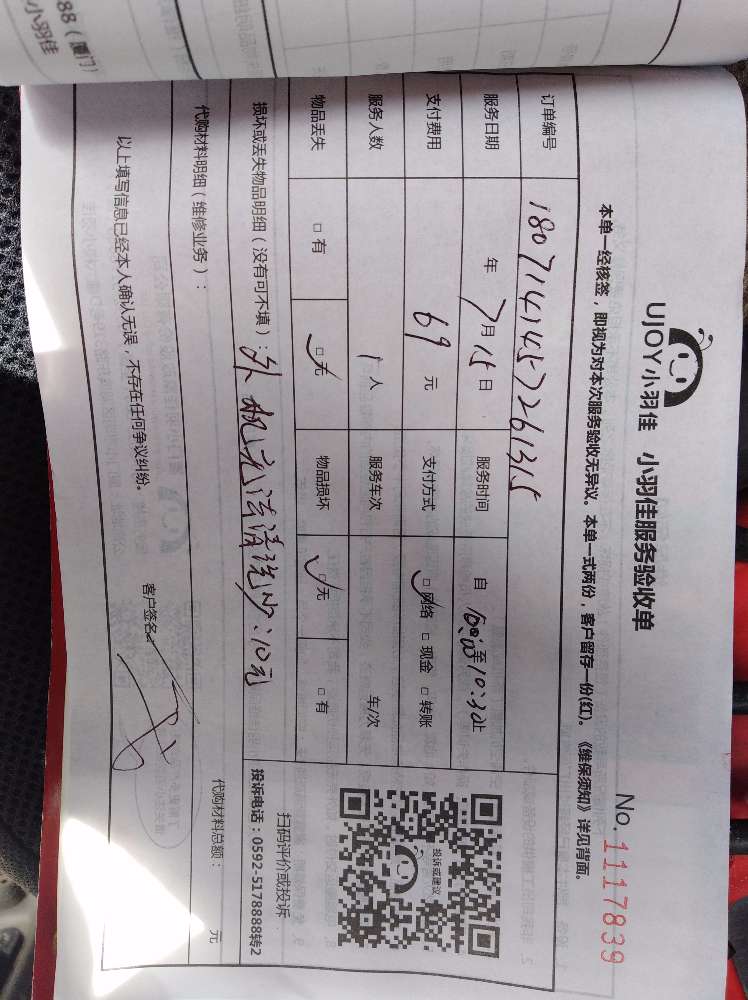 88（厦门）
小羽佳
UJOY小羽佳 小羽佳服务验收单
No. 1117839
本单一经核签，即视为对本次服务验收无异议。本单一式两份，客户留存一份(红)。《维保须知》详见背面。
订单编号 1807141457261315
服务日期 年 7月15日 服务时间 自 10:00至10:30止
支付费用 69 元 支付方式 ☑网络 □现金 □转账
服务人数 1人 服务车次 车/次
物品丢失 □有 ☑无 物品损坏 ☑无 □有
损坏或丢失物品明细（没有可不填）：外机无法清洗少:10元
代购材料明细（维修业务）：
代购材料总额： 元
以上填写信息已经本人确认无误，不存在任何争议纠纷。
客户签名：
投诉或建议
扫码评价或投诉
投诉电话：0592-5178888转2